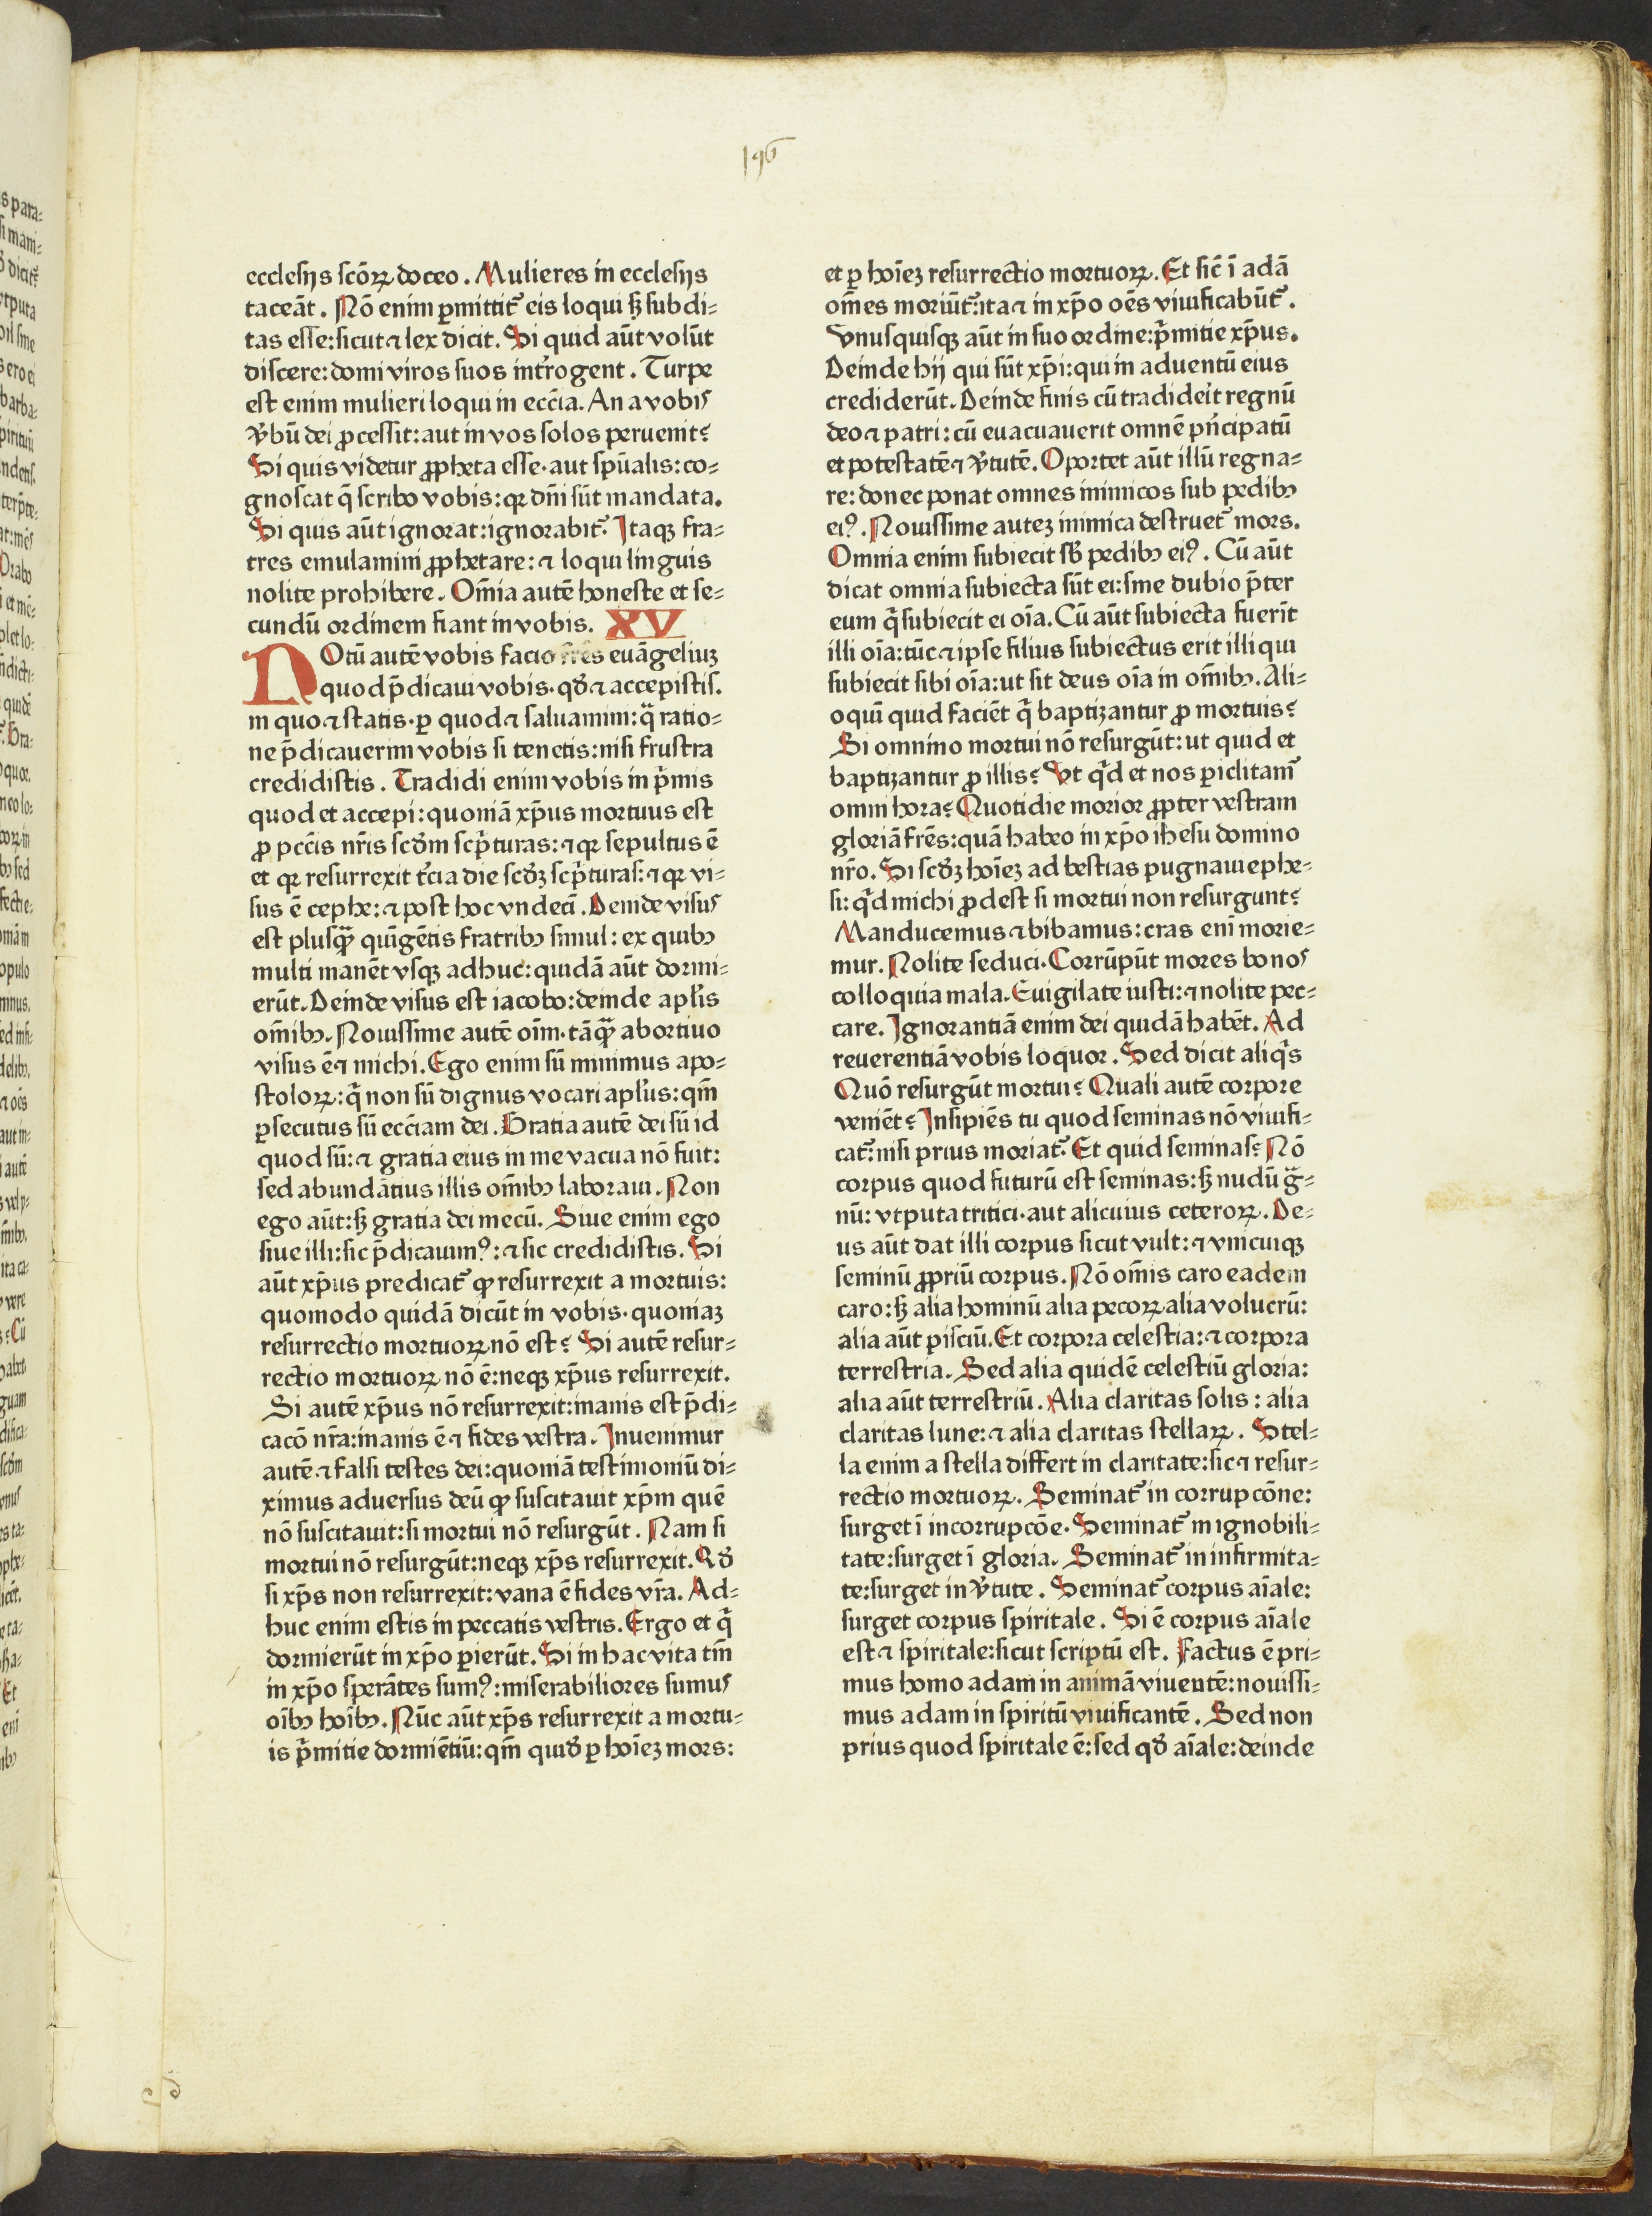 196
ecclesijs scōꝝ doceo. Mulieres in ecclesijs
taceāt. Nō enim ꝑmittit᷑ eis loqui sꝫ subdi⸗
tas esse: sicut ⁊ lex dicit. Si quid aūt volūt
discere: domi viros suos intrͦogent. Turpe
est enim mulieri loqui in eccīa. An a vobis
v̾bū dei ꝓcessit: aut in vos solos peruenit?
Si quis videtur ꝓpheta esse· aut spūalis: co⸗
gnoscat q̄ scribo vobis: qꝛ dn̄i sūt mandata.
Si quis aūt ignorat: ignorabit᷑. Itaqꝫ fra⸗
tres emulamini ꝓphetare: ⁊ loqui linguis
nolite prohibere. Om̄ia autē honeste et se⸗
cundū ordinem fiant in vobis. XV
NOtū autē vobis facio frēs euāgeliuꝫ
quod p̄dicaui vobis· qd̾ ⁊ accepistis.
in quo ⁊ statis· ꝑ quod ⁊ saluamini: qͣ ratio⸗
ne p̄dicauerim vobis si tenetis: nisi frustra
credidistis. Tradidi enim vobis in pͥmis
quod et accepi: quoniā xp̄us mortuus est
ꝓ pcc̄is nr̄is scd̾m scpͥturas: ⁊ qꝛ sepultus ē
et qꝛ resurrexit t̾cia die scd̾ꝫ scpͥturas: ⁊ qꝛ vi⸗
sus ē cephe: ⁊ post hoc vndeci᷑. Deinde visus
est plusqͣꝫ quīgētis fratribꝰ simul: ex quibꝰ
multi manēt vsqꝫ adhuc: quidā aūt dormi⸗
erūt. Deinde visus est iacobo: deinde apl̄is
om̄ibꝰ. Nouissime autē oīm· tāqͣꝫ abortiuo
visus ē ⁊ michi. Ego enim sū minimus apo⸗
stoloꝝ: qͥ non sū dignus vocari apl̄us: qm̄
ꝑsecutus sū ecc̄iam dei. Gratia autē dei sū id
quod sū: ⁊ gratia eius in me vacua nō fuit:
sed abundātius illis om̄ibꝰ laboraui. Non
ego aūt: sꝫ gratia dei mecū. Siue enim ego
siue illi: sic p̄dicauimꝰ: ⁊ sic credidistis. Si
aūt xp̄us predicat᷑ ꝙ resurrexit a mortuis:
quomodo quidā dicūt in vobis· quoniaꝫ
resurrectio mortuoꝝ nō est? Si autē resur⸗
rectio mortuoꝝ nō ē: neqꝫ xp̄us resurrexit.
Si autē xp̄us nō resurrexit: inanis est p̄di⸗
cacō nr̄a: inanis ē ⁊ fides vestra. Inuenimur
autē ⁊ falsi testes dei: quoniā testimoniū di⸗
ximus aduersus deū ꝙ suscitauit xp̄m quē
nō suscitauit: si mortui nō resurgūt. Nam si
mortui nō resurgūt: neqꝫ xp̄s resurrexit. Qd̾
si xp̄s non resurrexit: vana ē fides vr̄a. Ad⸗
huc enim estis in peccatis vestris. Ergo et qͥ
dormierūt in xp̄o ꝑierūt. Si in hac vita tm̄
in xp̄o sperātes sumꝰ: miserabiliores sumus
oībꝰ hoībꝰ. Nūc aūt xp̄s resurrexit a mortu⸗
is pͥmitie dormiētiū: qm̄ quid̾ ꝑ hoīeꝫ mors:
et ꝑ hoīeꝫ resurrectio mortuoꝝ. Et sic̄ ī adā
om̄es moriūt᷑: ita ⁊ in xp̄o oēs viuificabūt᷑.
Vnusquisqꝫ aūt in suo ordine: pͥmitie xp̄us.
Deinde hij qui sūt xp̄i: qui in aduentū eius
crediderūt. Deinde finis cū tradideit̾ regnū
deo ⁊ patri: cū euacuauerit omnē pn̄cipatū
et potestatē ⁊ v̾tutē. Oportet aūt illū regna⸗
re: donec ponat omnes inimicos sub pedibꝰ
eiꝰ. Nouissime auteꝫ inimica destruet᷑ mors.
Omnia enim subiecit sb̾ pedibꝰ eiꝰ. Cū aūt
dicat omnia subiecta sūt ei: sine dubio p̄ter
eum qͥ subiecit ei oīa. Cū aūt subiecta fuerīt
illi oīa: tūc ⁊ ipse filius subiectus erit illi qui
subiecit sibi oīa: ut sit deus oīa in om̄ibꝰ. Ali⸗
oquī quid faciēt qͥ baptizantur ꝓ mortuis?
Si omnino mortui nō resurgūt: ut quid et
baptizantur ꝓ illis? Vt qͥd et nos ꝑiclitam᷑
omni hora? Quotidie morior ꝓpter vestram
gloriā frēs: quā habeo in xp̄o ih̄esu domino
nr̄o. Si scd̾ꝫ hoīeꝫ ad bestias pugnaui ephe⸗
si: qͥd michi ꝓdest si mortui non resurgunt?
Manducemus ⁊ bibamus: cras eni᷑ morie⸗
mur. Nolite seduci· Corrūpūt mores bonos
colloquia mala. Euigilate iusti: ⁊ nolite pec⸗
care. Ignorantiā enim dei quidā habēt. Ad
reuerentiā vobis loquor. Sed dicit aliqͥs
Quō resurgūt mortui? Quali autē corpore
veniēt? Insipiēs tu quod seminas nō viuifi⸗
cat᷑: nisi prius moriat᷑. Et quid seminas? Nō
corpus quod futurū est seminas: sꝫ nudū gͣ⸗
nū: vtputa tritici· aut alicuius ceteroꝝ. De⸗
us aūt dat illi corpus sicut vult: ⁊ vnicuiqꝫ
seminū ꝓpriū corpus. Nō om̄is caro eadem
caro: sꝫ alia hominū alia pecoꝝ alia volucrū:
alia aūt pisciū. Et corpora celestia: ⁊ corpora
terrestria. Sed alia quidē celestiū gloria:
alia aūt terrestriū. Alia claritas solis: alia
claritas lune: ⁊ alia claritas stellaꝝ. Stel⸗
la enim a stella differt in claritate: sic ⁊ resur⸗
rectio mortuoꝝ. Seminat᷑ in corrupcōne:
surget ī incorrupcōe. Seminat᷑ in ignobili⸗
tate: surget ī gloria. Seminat᷑ in infirmita⸗
te: surget in v̾tute. Seminat᷑ corpus aīale:
surget corpus spiritale. Si ē corpus aīale
est ⁊ spiritale: sicut scriptū est. Factus ē pri⸗
mus homo adam in animā viuentē: nouissi⸗
mus adam in spiritū viuificantē. Sed non
prius quod spiritale ē: sed qd̾ aīale: deinde